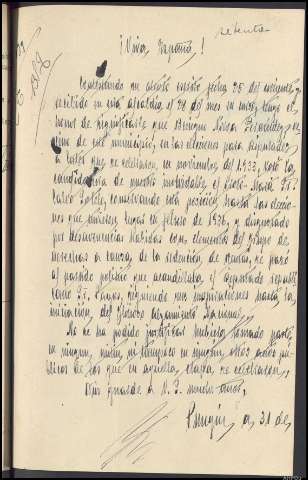 ¡Viva España!
Contestando su atento oficio fecha 25 del corriente
recibido en esta alcaldía el 29 del mes en curso, tengo el
honor de significarle que Benigno
cino de este municipio, en las elecciones para Diputados
a Cortes que se celebraron en noviembre de 1933, votó la
candidatura de nuestro inolvidable
Calvo Sotelo, conservando esta posición hasta las eleccio
nes que tuvieron lugar en febrero de 1936, y disgustado
por desavenencias habidas con elementos del grupo de
derechas a causa de la redención de rentas, se pasó
al partido político que acaudillaba el diputado republi
cano siguiendo sus inspiraciones hasta la
iniciación del Glorioso Alzamiento Nacional.
No se ha podido justificar hubiera tomado parte
en ningún mitin, ni tampoco en ningún otros actos pú-
blicos de los que en aquella época se celebraban.
Dios guarde a V. S. muchos años.
Punxín, a 31 de